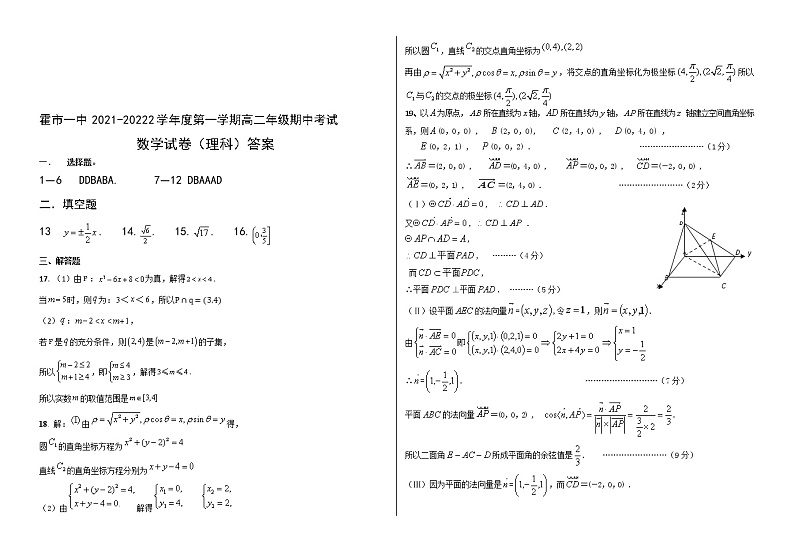 霍市一中 2021-20222 学年度第一学期高二年级期中考试
数学试卷（理科）答案
一. 选择题。
1—6 DDBABA. 7—12 DBAAAD
二．填空题
13 y=±1/2 x. 14. √6/2. 15. √17. 16. [0, 3/5]
三、解答题
17.（1）由 P：x²−6x+8<0为真，解得2<x<4.
当m=5时，则q为：3<x<6，所以P∩q=(3.4)
（2）q：m−2<x<m+1，
若P是q的充分条件，则(2,4)是(m−2,m+1)的子集，
所以{m−2≤2 m+1≥4，即{m≤4 m≥3，解得3≤m≤4.
所以实数m的取值范围是m∈[3,4]
18. 解：(1)由ρ=√(x²+y²),ρcosθ=x,ρsinθ=y得，
圆C₁的直角坐标方程为x²+(y−2)²=4
直线C₂的直角坐标方程分别为x+y−4=0
（2）由{x²+(y−2)²=4, x+y−4=0. 解得{x₁=0, y₁=4, {x₂=2, y₂=2,
所以圆C₁，直线C₂的交点直角坐标为(0,4),(2,2)
再由ρ=√(x²+y²),ρcosθ=x,ρsinθ=y，将交点的直角坐标化为极坐标(4,π/2),(2√2,π/4)所以
C₁与C₂的交点的极坐标(4,π/2),(2√2,π/4)
19、以A为原点，AB所在直线为x轴，AD所在直线为y轴，AP所在直线为z 轴建立空间直角坐标
系，则A(0，0，0)， B(2，0，0)， C(2，4，0)， D(0，4，0)，
E(0，2，1)， P(0，0，2)． ……………………（1分）
∴AB=(2，0，0)， AD=(0，4，0)， AP=(0，0，2)， CD=(−2，0，0)，
AE=(0，2，1)， AC=(2，4，0)． ……………………（2分）
（Ⅰ）⊙CD·AD=0，∴CD⊥AD．
又⊙CD·AP=0，∴CD⊥AP ．
⊙ AP∩AD=A，
∴CD⊥平面PAD， ………（4分）
而CD⊂平面PDC，
∴平面PDC⊥平面PAD． ………（5分）
E
D
y
B
C
（Ⅱ）设平面AEC的法向量n=(x,y,z),令z=1，则n=(x,y,1)．
由{n·AE=0 n·AC=0即{(x,y,1)·(0,2,1)=0 (x,y,1)·(2,4,0)=0⇒{2y+1=0 2x+4y=0⇒{x=1 y=−1/2
∴n=(1,−1/2,1)． ……………………（7分）
平面ABC的法向量AP=(0，0，2)， cos(n,AP)=n·AP/|n|×|AP|=2/(3/2×2)=2/3．
所以二面角E−AC−D所成平面角的余弦值是2/3． ……………………（9分）
（Ⅲ）因为平面的法向量是n=(1,−1/2,1)，而CD=(−2，0，0)．